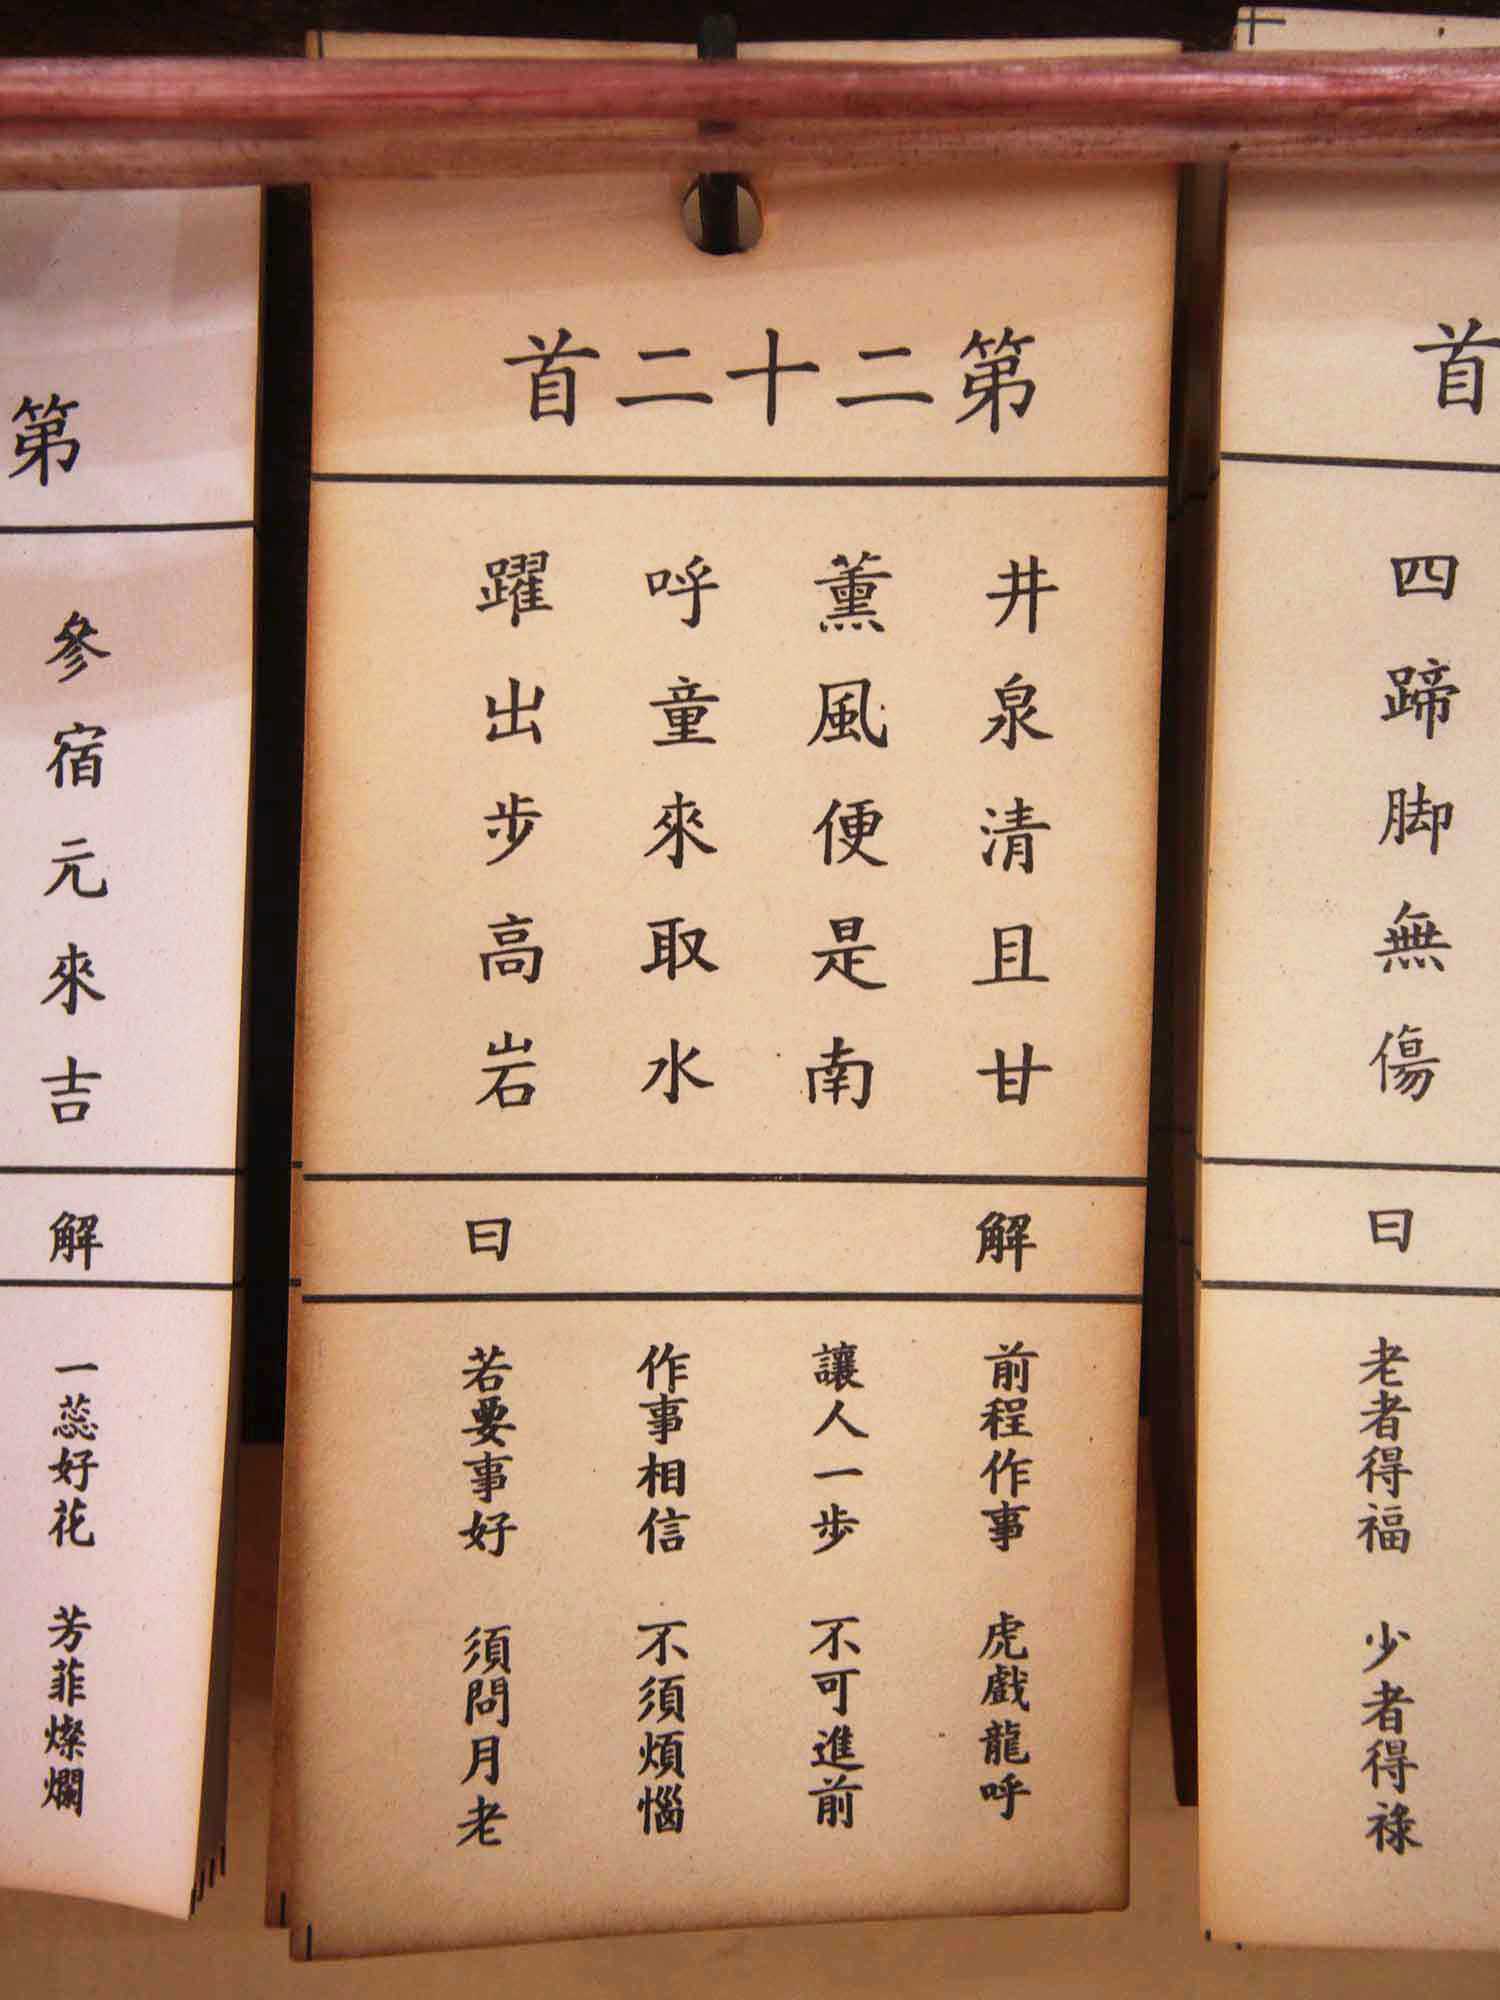 第二十二首
井泉清且甘
薰風便是南
呼童來取水
躍出步高岩
解曰
前程作事 虎戲龍呼
讓人一步 不可進前
作事相信 不須煩惱
若要事好 須問月老
首
四蹄脚無傷
曰
老者得福 少者得祿
第
參宿元來吉
解
一蕊好花 芳菲燦爛